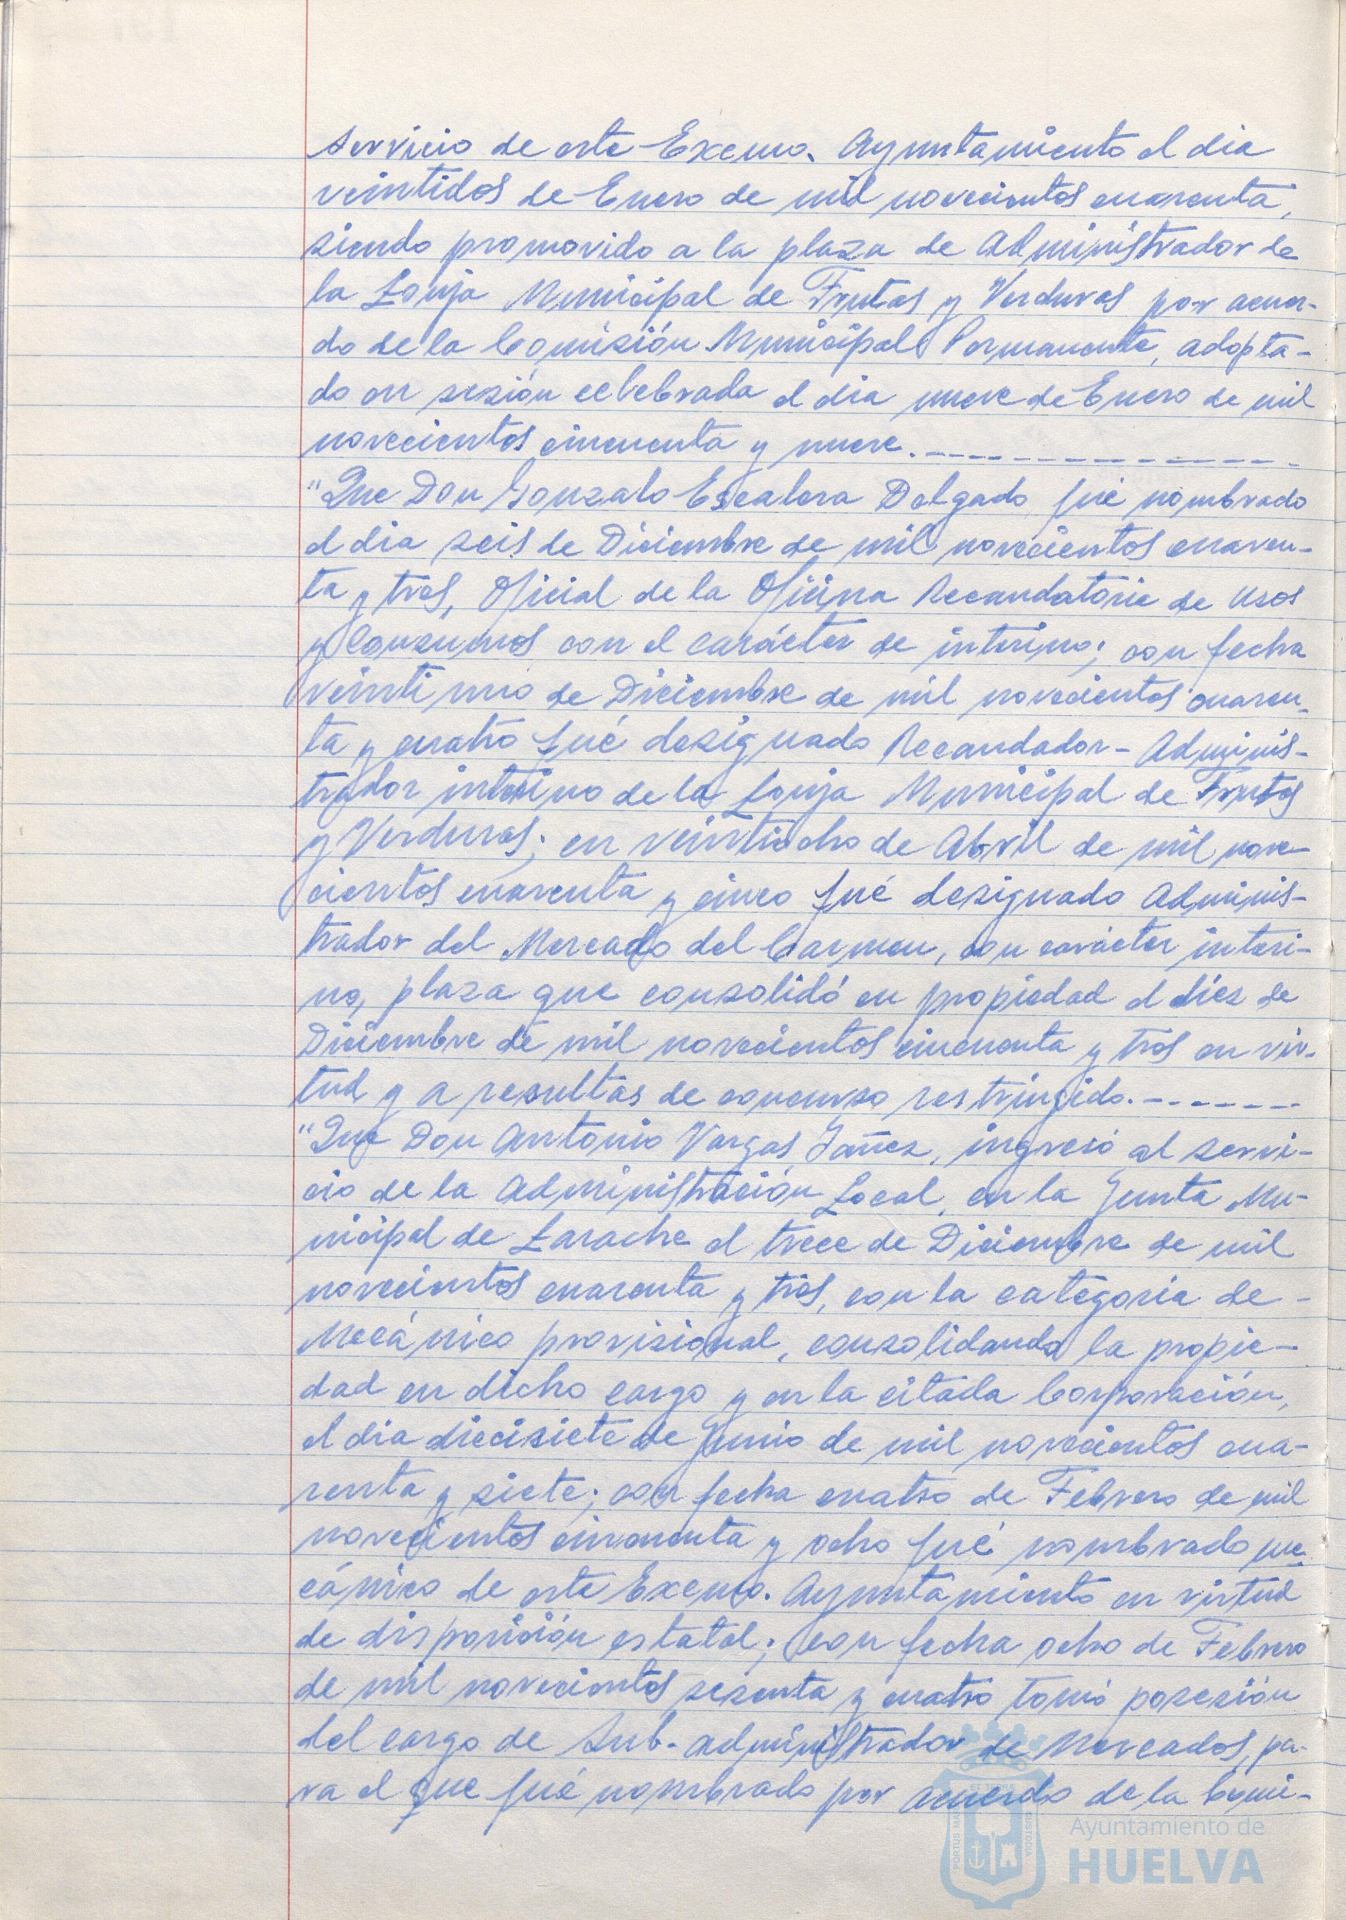 servicio de este Excmo. Ayuntamiento el dia
veintidos de Enero de mil novecientos cuarenta,
siendo promovido a la plaza de Administrador de
la Lonja Municipal de Frutas y Verduras por acuer-
do de la Comisión Municipal Permanente, adopta-
do en sesión celebrada el dia nueve de Enero de mil
novecientos cincuenta y nueve.
"Que Don Gonzalo Escalera Delgado fué nombrado
el dia seis de Diciembre de mil novecientos cuaren-
ta y tres, Oficial de la Oficina Recaudatoria de Usos
y Consumos con el carácter de interino; con fecha
veintiuno de Diciembre de mil novecientos cuaren-
ta y cuatro fué designado Recaudador-Adminis-
trador interino de la Lonja Municipal de Frutas
y Verduras; en veintiocho de Abril de mil nove-
cientos cuarenta y cinco fué designado Adminis-
trador del Mercado del Carmen, con carácter interi-
no, plaza que consolidó en propiedad el diez de
Diciembre de mil novecientos cincuenta y tres en vir-
tud y a resultas de concurso restringido.
"Que Don Antonio Vargas Yañez, ingresó al servi-
cio de la Administración Local, en la Junta Mu-
nicipal de Larache el trece de Diciembre de mil
novecientos cuarenta y tres, con la categoria de-
Mecánico provisional, consolidando la propie-
dad en dicho cargo y en la citada Corporación,
el dia diecisiete de Junio de mil novecientos cua-
renta y siete; con fecha cuatro de Febrero de mil
novecientos cincuenta y ocho fué nombrado me-
cánico de este Excmo. Ayuntamiento en virtud
de disposición estatal; con fecha ocho de Febrero
de mil novecientos sesenta y cuatro tomó posesión
del cargo de Sub-administrador de Mercados, pa-
ra el que fué nombrado por acuerdo de la Comi-
Ayuntamiento de
HUELVA